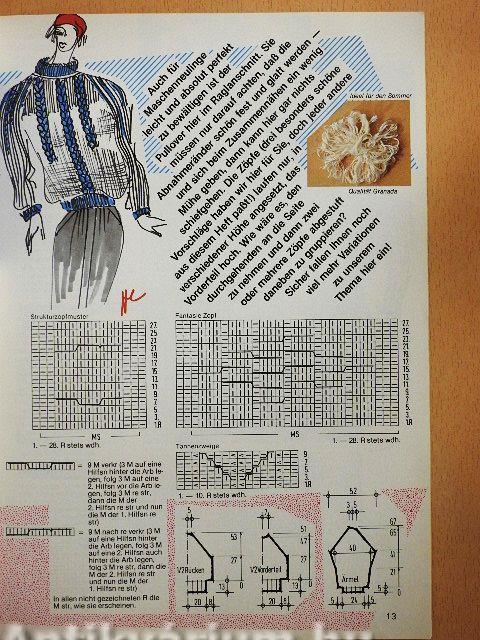 Auch für
Maschenneulinge
leicht und absolut perfekt
zu bewältigen ist der
Pullover hier im Raglanschnitt. Sie
müssen nur darauf achten, daß die
Abnahmeränder schön fest und glatt werden —
und sich beim Zusammennähen ein wenig
Mühe geben, dann kann hier gar nichts
schiefgehen. Die Zöpfe (drei besonders schöne
Vorschläge haben wir hier für Sie, doch jeder andere
aus diesem Heft paßt) laufen nur, in
verschiedener Höhe angesetzt, das
Vorderteil hoch. Wie wäre es, den
durchgehenden an die Seite
zu nehmen und dann zwei
oder mehrere Zöpfe abgestuft
daneben zu gruppieren?
Sicher fallen Ihnen noch
viel mehr Variationen
zu unserem
Thema hier ein!
Ideal für den Sommer
Qualität Granada
Strukturzopfmuster
27.
25.
23.
21.
19.
17.
15.
13.
11.
9.
7.
5.
3.
1.R
MS
1. — 28. R stets wdh.
Fantasie Zopf
27.
25.
23.
21.
19.
17.
15.
13.
11.
9.
7.
5.
3.
1.R
MS
1. — 28. R stets wdh.
Tannenzweige
9.
7.
5.
3.
1.R
1. — 10. R stets wdh.
= 9 M verkr (3 M auf eine
Hilfsn hinter die Arb le-
gen, folg 3 M auf eine
2. Hilfsn vor die Arb le-
gen, folg 3 M re str,
dann die M der
2. Hilfsn re str und nun
die M der 1. Hilfsn re
str)
= 9 M nach re verkr (3 M
auf eine Hilfsn hinter
die Arb legen, folg 3 M
auf eine 2. Hilfsn auch
hinter die Arb legen,
folg 3 M re str, dann die
M der 2. Hilfsn re str
und nun die M der
1. Hilfsn re str)
In allen nicht gezeichneten R die
M str, wie sie erscheinen.
5
53
27
13
0
1/2 Rücken
20
8
7
51
47
27
13
0
1/2 Vorderteil
20
8
52
3,5
67
65
40
41
27
0
Ärmel
5
24
5
13